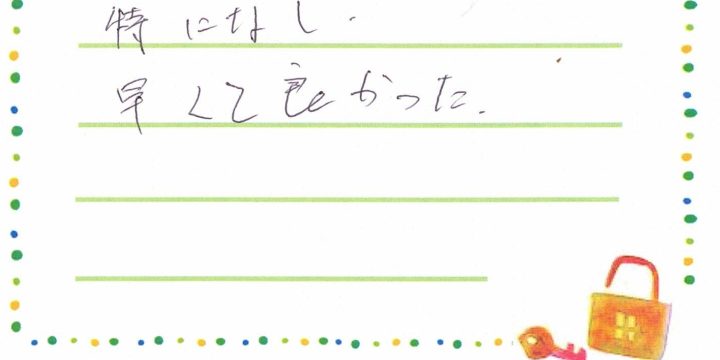 特になし.
早くて良かった.